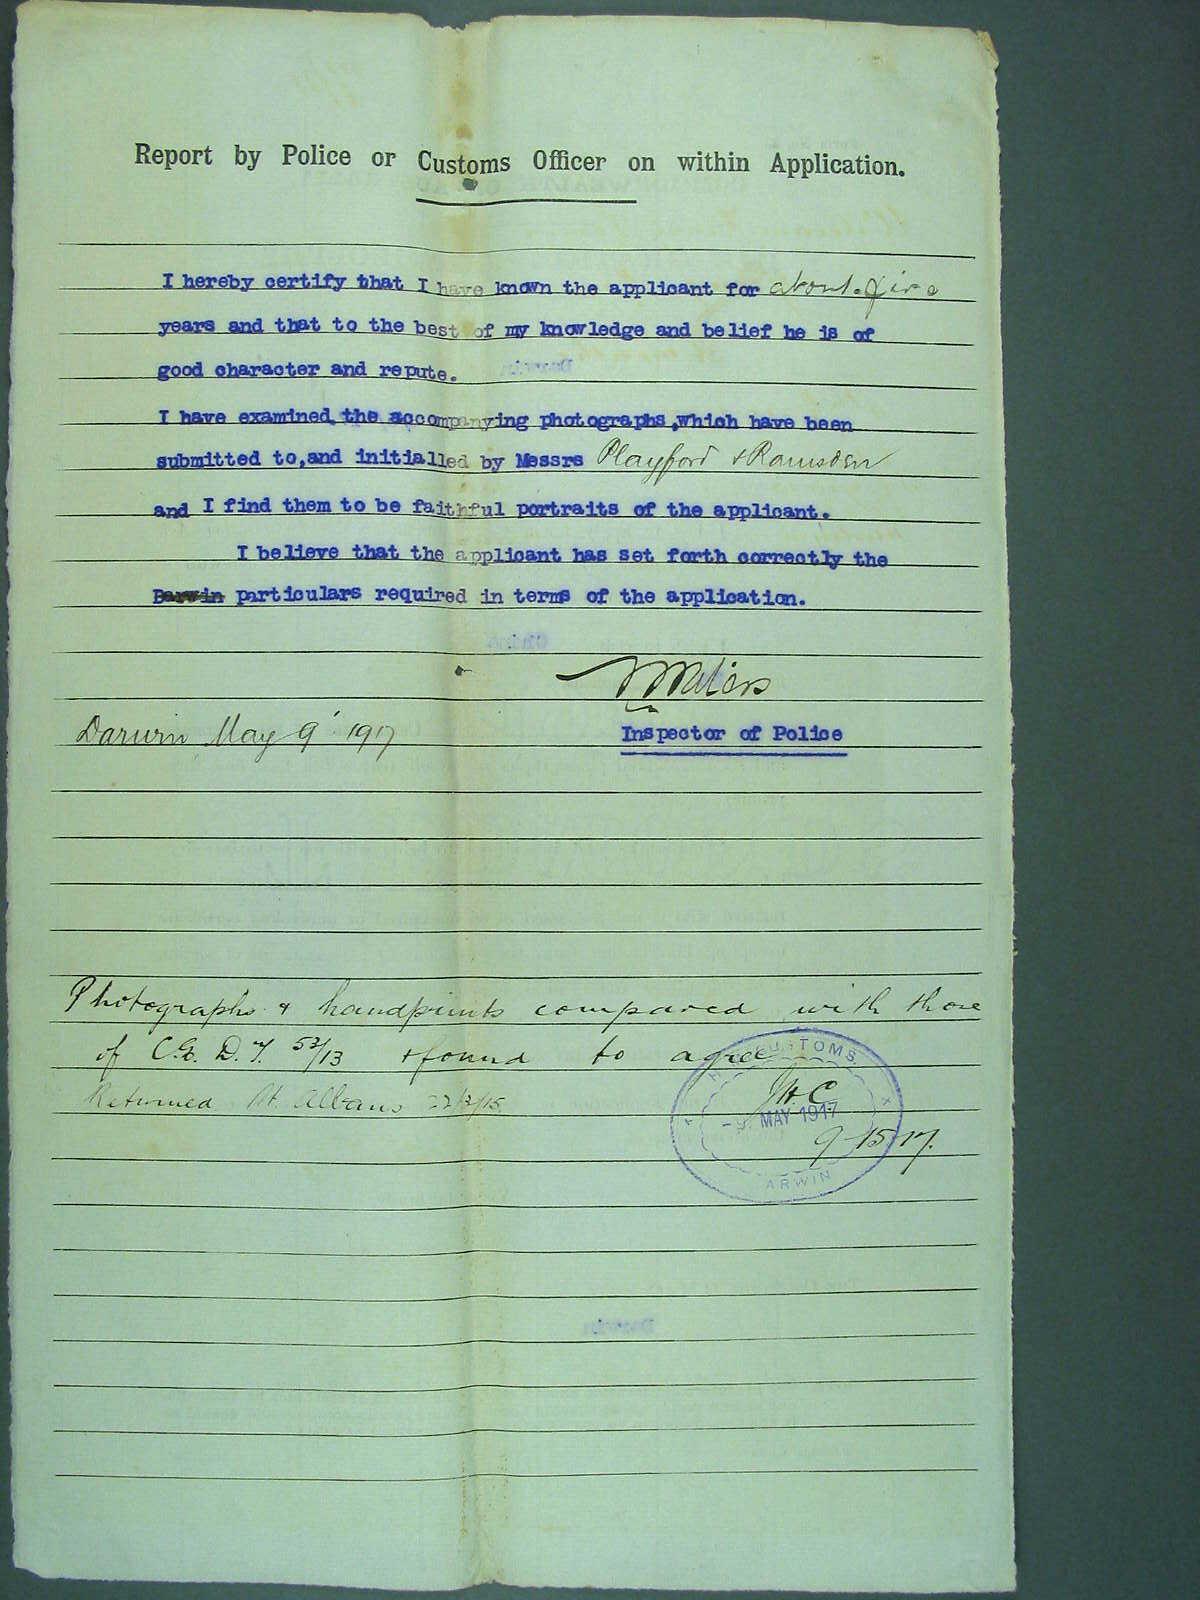 Report by Police or Customs Officer on within Application.
I hereby certify that I have known the applicant for about five
years and that to the best of my knowledge and belief he is of
good character and repute.
I have examined the accompanying photographs, which have been
submitted to, and initialled by Messrs Playford & Ramsden
and I find them to be faithful portraits of the applicant.
I believe that the applicant has set forth correctly the
Darwin particulars required in terms of the application.
Inspector of Police
Darwin May 9 1917
Photographs & handprints compared with those
of C.E.D.T. 53/13 & found to agree
Returned St. Albans 22/3/15
J.H.C.
9-15-17.
CUSTOMS
MAY 1917
ARWIN